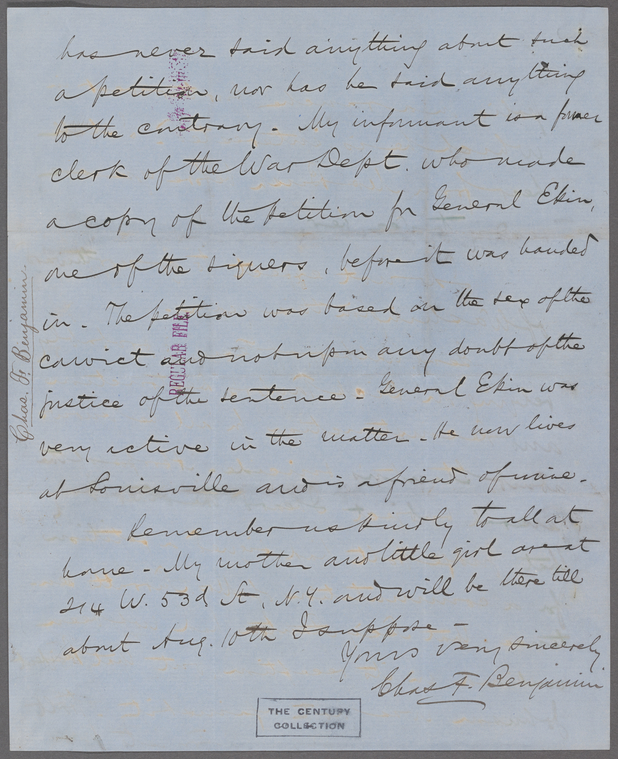 has never said anything about such
a petition, nor has he said anything
to the contrary. My informant is a former
clerk of the War Dept. who made
a copy of the petition for General Ekin,
one of the signers, before it was handed
in. The petition was based on the sex of the
convict and not upon any doubt of the
justice of the sentence. General Ekin was
very active in the matter. He now lives
at Louisville and is a friend of mine.
Remember us kindly to all at
home. My mother and little girl are at
214 W. 53d St, N.Y. and will be there till
about Aug. 10th I suppose.
Yours very sincerely
Chas F. Benjamin
Chas. F. Benjamin
REGULAR FILE
THE CENTURY
COLLECTION